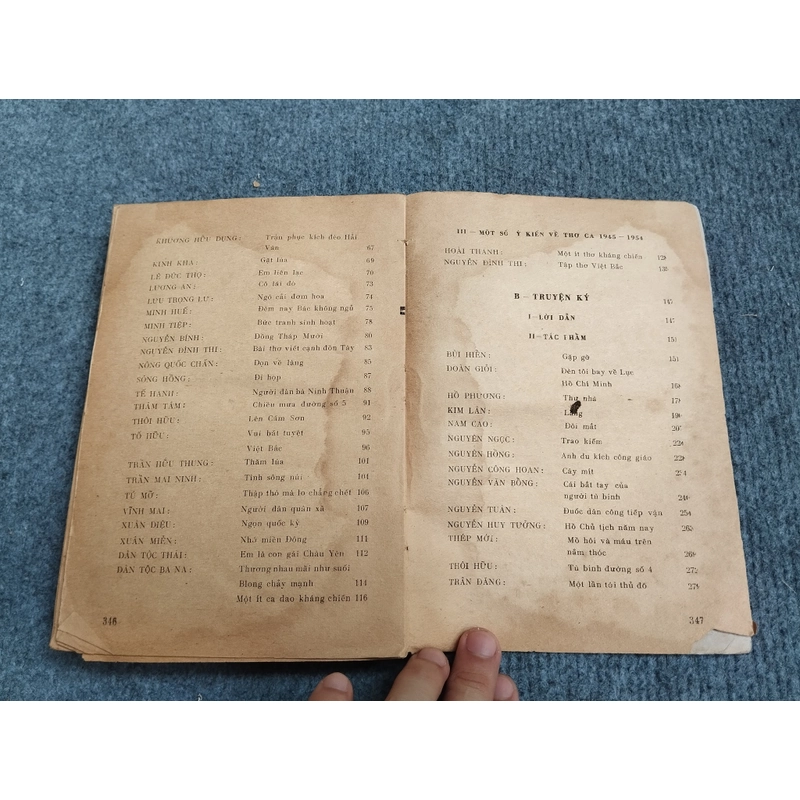 KHƯƠNG HỮU DỤNG: Trận phục kích đèo Hải
Vân 67
KINH KHA: Gặt lúa 69
LÊ ĐỨC THỌ: Em liên lạc 70
LƯƠNG AN: Cô lái đò 73
LƯU TRỌNG LƯ: Ngò cải đơm hoa 74
MINH HUỆ: Đêm nay Bác không ngủ 75
MINH TIỆP: Bức tranh sinh hoạt 78
NGUYÊN BÍNH: Đồng Tháp Mười 80
NGUYỄN ĐÌNH THI: Bài thơ viết cạnh đồn Tây 83
NÔNG QUỐC CHẤN: Dọn về làng 85
SÓNG HỒNG: Đi họp 87
TẾ HANH: Người đàn bà Ninh Thuận 88
THÂM TÂM: Chiều mưa đường số 5 91
THÔI HỮU: Lên Cấm Sơn 92
TỐ HỮU: Vui bất tuyệt 95
Việt Bắc 96
TRẦN HỮU THUNG: Thăm lúa 101
TRẦN MAI NINH: Tình sông núi 101
TÚ MỠ: Thập thò mà lo chẳng chết 106
VĨNH MAI: Người đàn quân xã 107
XUÂN DIỆU: Ngọn quốc kỳ 109
XUÂN MIỄN: Nhớ miền Đông 111
DÂN TỘC THÁI: Em là con gái Châu Yên 112
DÂN TỘC BA NA: Thương nhau mãi như suối
Blong chảy mạnh 114
Một ít ca dao kháng chiến 116
346
III — MỘT SỐ Ý KIẾN VỀ THƠ CA 1945 — 1954
HOÀI THANH: Một ít thơ kháng chiến
NGUYỄN ĐÌNH THI: Tập thơ Việt Bắc
B — TRUYỆN KÝ
I — LỜI DẪN 147
II — TÁC PHẨM
BÙI HIỂN: Gặp gỡ
ĐOÀN GIỎI: Đèn tôi bay về Lục
Hồ Chí Minh
HỒ PHƯƠNG: Thư nhà
KIM LÂN: Làng
NAM CAO: Đôi mắt
NGUYÊN NGỌC: Trao kiếm
NGUYÊN HỒNG: Anh du kích công giáo
NGUYỄN CÔNG HOAN: Cây mít
NGUYỄN VĂN BỔNG: Cái bắt tay của
người tù binh
NGUYỄN TUÂN: Đuốc dân công tiếp vận
NGUYỄN HUY TƯỞNG: Hồ Chủ tịch năm nay
THÉP MỚI: Mồ hôi và máu trên
nắm thóc
THÔI HỮU: Tù binh đường số 4
TRẦN ĐĂNG: Một lần tới thủ đô
347